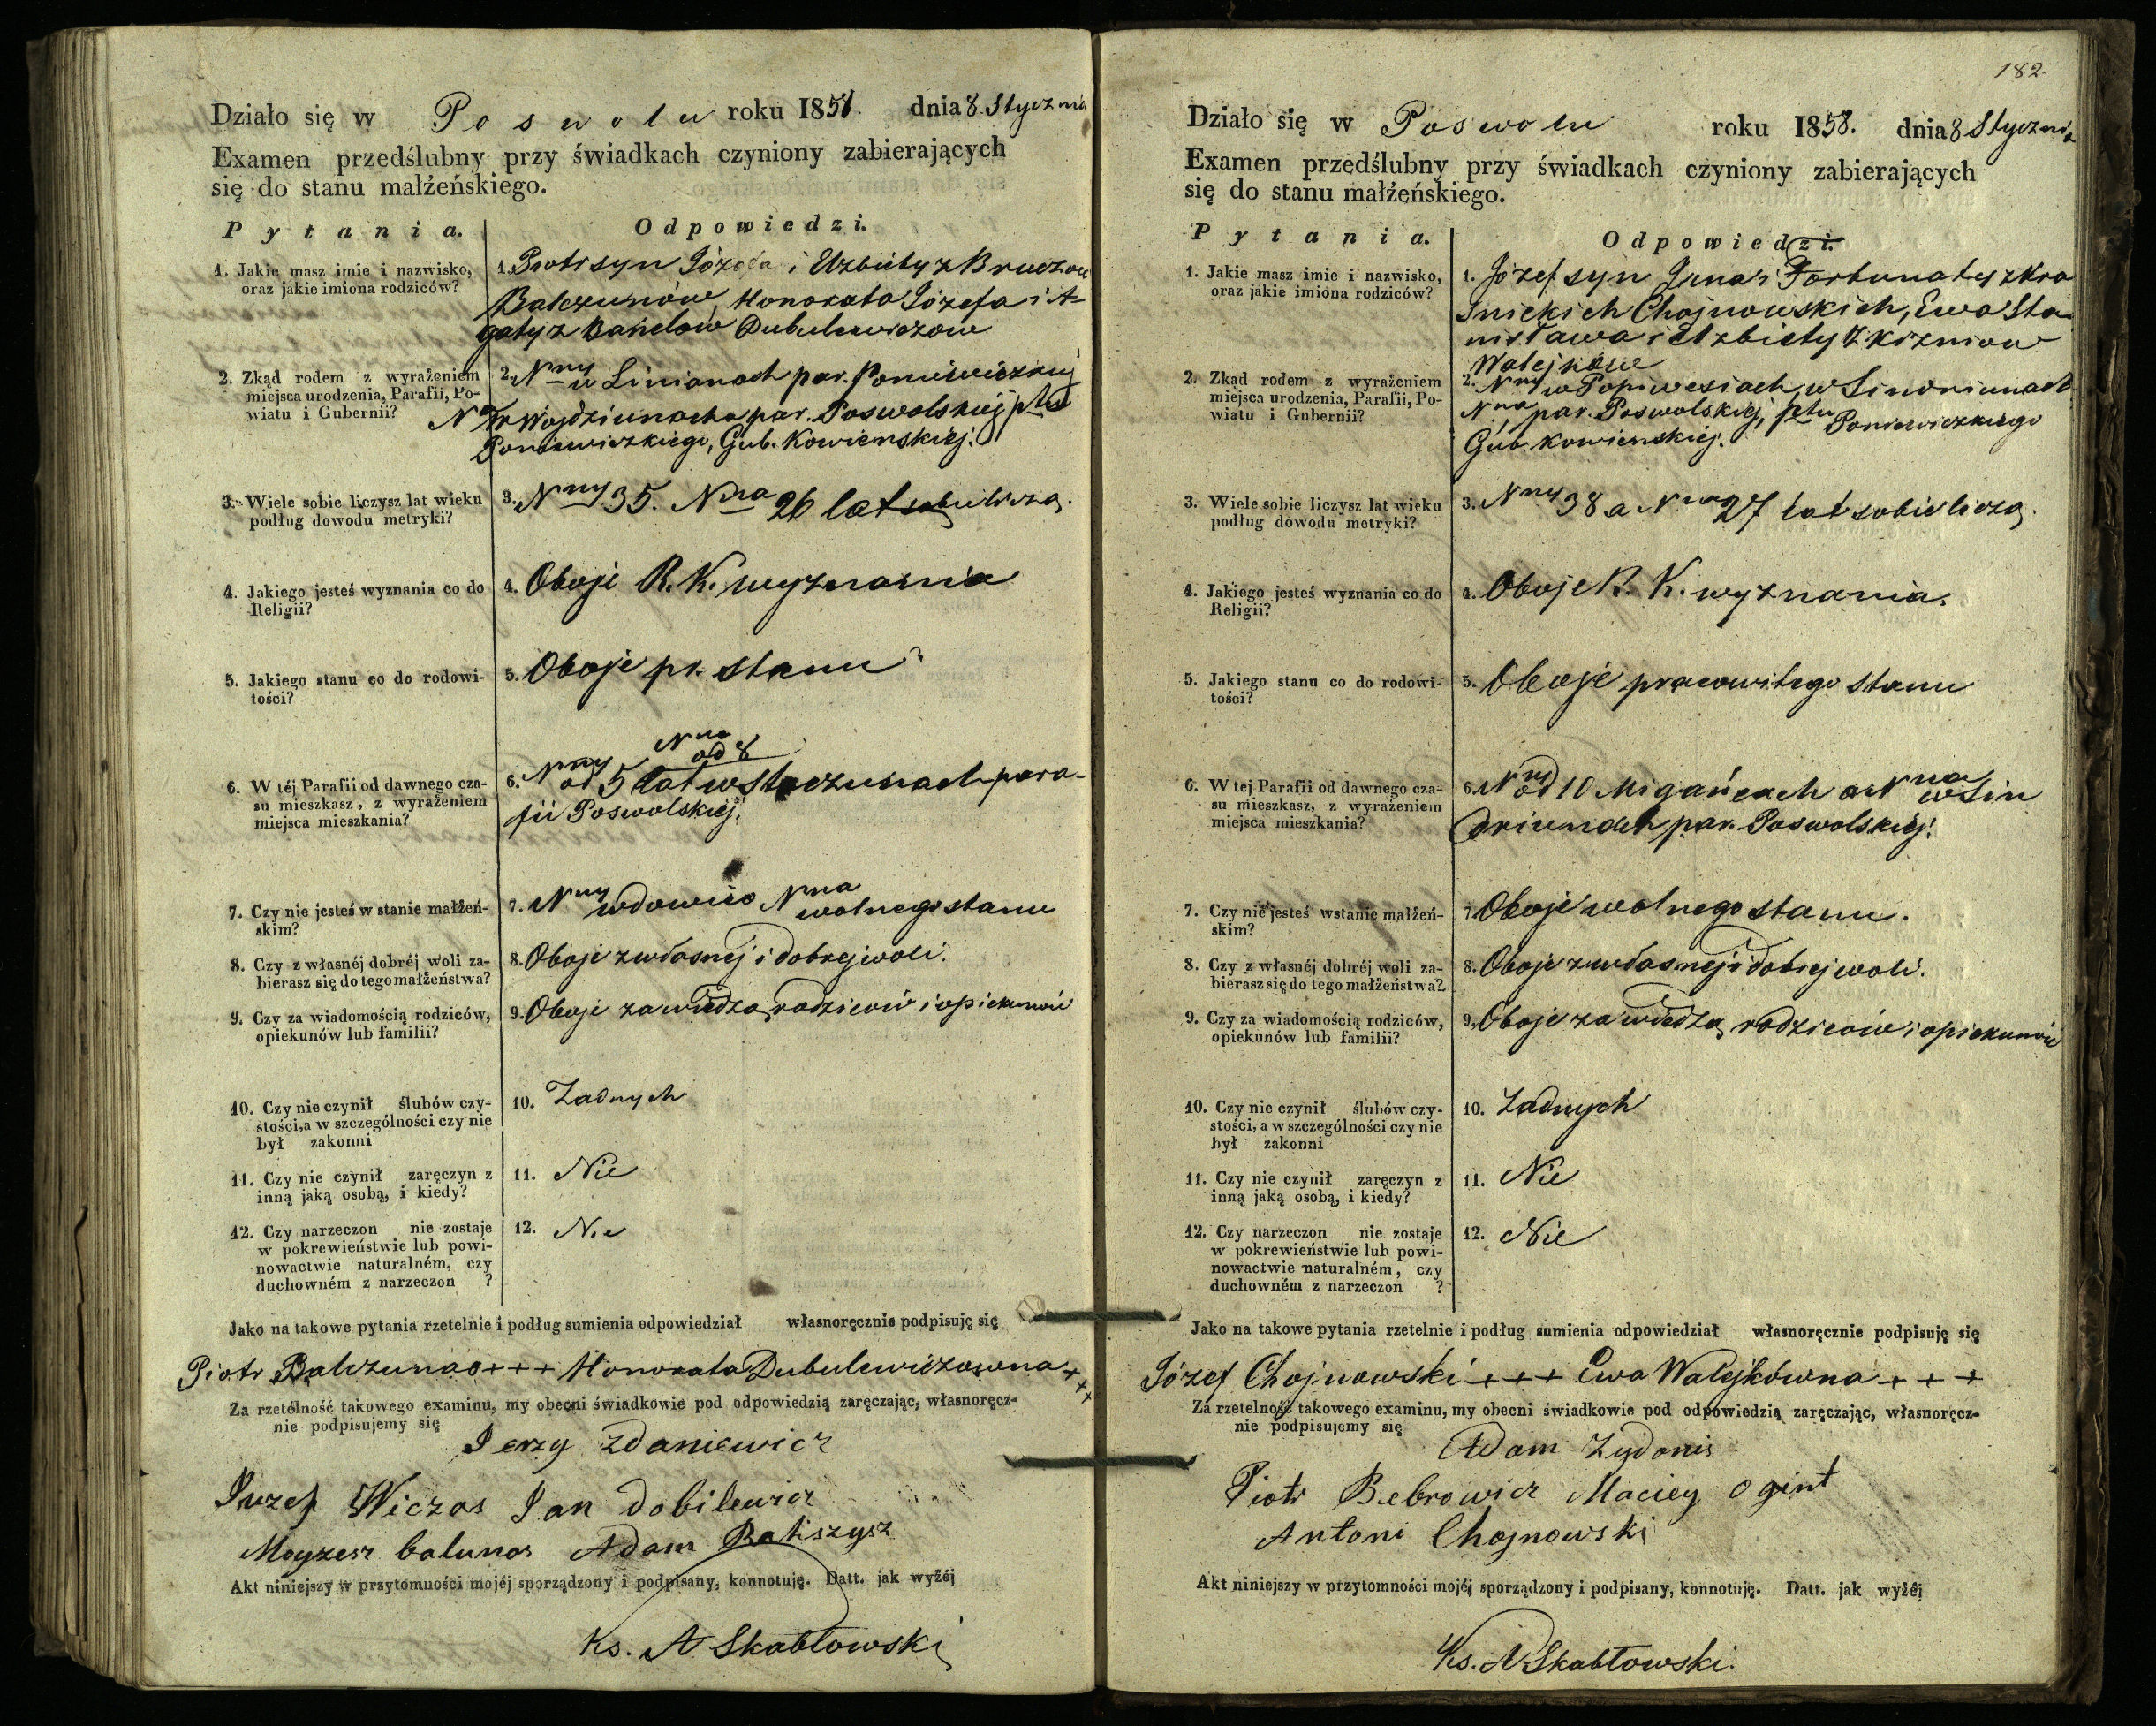 Działo się w Poswolu roku 1858. dnia 8. Stycznia
Examen przedślubny przy świadkach czyniony zabierających
się do stanu małżeńskiego.
Pytania. Odpowiedzi.
1. Jakie masz imie i nazwisko,
oraz jakie imiona rodziców?
1. Piotr syn Józefa i Elzbiety z
Balczunów, Honorata Józefa i A-
gaty z Dubulewiczow
2. Zkąd rodem z wyrażeniem
miejsca urodzenia, Parafii, Po-
wiatu i Gubernii?
2. Nny w Linianach par. Poniewiezkiej
Nna w Wojdziunach par. Poswolskiej ptu
Poniewiezkiego, Gub. Kowienskiej.
3. Wiele sobie liczysz lat wieku
podług dowodu metryki?
3. Nny 35. Nna 26 lat sobie liczą.
4. Jakiego jesteś wyznania co do
Religii?
4. Oboje R. K. wyznania
5. Jakiego stanu co do rodowi-
tości?
5. Oboje pr. stanu
6. W téj Parafii od dawnego cza-
su mieszkasz, z wyrażeniem
miejsca mieszkania?
Nna
od 8
6. Nny od 5 lat w para-
fii Poswolskiej.
7. Czy nie jesteś w stanie małżeń-
skim?
7. Nny wdowiec Nna wolnego stanu
8. Czy z własnéj dobréj woli za-
bierasz się do tego małżeństwa?
8. Oboje z własnej i dobrej woli.
9. Czy za wiadomością rodziców,
opiekunów lub familii?
9. Oboje za wiedzą rodziców i opiekunów
10. Czy nie czynił ślubów czy-
stości, a w szczególności czy nie
był zakonni
10. Żadnych
11. Czy nie czynił zaręczyn z
inną jaką osobą, i kiedy?
11. Nie
12. Czy narzeczon nie zostaje
w pokrewieństwie lub powi-
nowactwie naturalném, czy
duchowném z narzeczon ?
12. Nie
Jako na takowe pytania rzetelnie i podług sumienia odpowiedział własnoręcznie podpisuję się
Piotr Balczunas + + + Honorata Dubulewiczowna + + +
Za rzetelność takowego examinu, my obecni świadkowie pod odpowiedzią zaręczając, własnoręcz-
nie podpisujemy się
Jerzy Zdaniewicz
Juzef Wiczas Jan Dobilewicz
Moyzesz balunas Adam
Akt niniejszy w przytomności mojéj sporządzony i podpisany, konnotuję. Datt. jak wyżéj
Ks. A Skabłowski
182
Działo się w Poswolu roku 1858. dnia 8 Stycznia
Examen przedślubny przy świadkach czyniony zabierających
się do stanu małżeńskiego.
Pytania. Odpowiedzi.
1. Jakie masz imie i nazwisko,
oraz jakie imiona rodziców?
1. Józef syn i Fortunaty z Kra
snickich Chojnowskich, Ewa Sta-
nisława i Elzbiety z
Walejkow
2. Zkąd rodem z wyrażeniem
miejsca urodzenia, Parafii, Po-
wiatu i Gubernii?
2. Nny w Popiwesiach, w Lindriunach
Nna par. Poswolskiej, ptu Poniewiezkiego
Gub. Kowienskiej.
3. Wiele sobie liczysz lat wieku
podług dowodu metryki?
3. Nny 38 a Nna 27 lat sobie liczą.
4. Jakiego jesteś wyznania co do
Religii?
4. Oboje R. K. wyznania.
5. Jakiego stanu co do rodowi-
tości?
5. Oboje pracowitego stanu
6. W tej Parafii od dawnego cza-
su mieszkasz, z wyrażeniem
miejsca mieszkania?
6. Nny od 10 Migańcach a Nna w Lin
driunach par. Poswolskiej.
7. Czy nie jesteś w stanie małżeń-
skim?
7. Oboje wolnego stanu.
8. Czy z własnéj dobréj woli za-
bierasz się do tego małżeństwa?
8. Oboje z własnej i dobrej woli.
9. Czy za wiadomością rodziców,
opiekunów lub familii?
9. Oboje za wiedzą rodziców i opiekunów
10. Czy nie czynił ślubów czy-
stości, a w szczególności czy nie
był zakonni
10. Żadnych
11. Czy nie czynił zaręczyn z
inną jaką osobą, i kiedy?
11. Nie
12. Czy narzeczon nie zostaje
w pokrewieństwie lub powi-
nowactwie naturalném, czy
duchowném z narzeczon ?
12. Nie
Jako na takowe pytania rzetelnie i podług sumienia odpowiedział własnoręcznie podpisuję się
Józef Chojnowski + + + Ewa Walejkówna + + +
Za rzetelność takowego examinu, my obecni świadkowie pod odpowiedzią zaręczając, własnoręcz-
nie podpisujemy się
Adam Zydonis
Piotr Bebrowicz Maciey Ogint
Antoni Chojnowski
Akt niniejszy w przytomności mojéj sporządzony i podpisany, konnotuję. Datt. jak wyżéj
Ks. A Skabłowski.